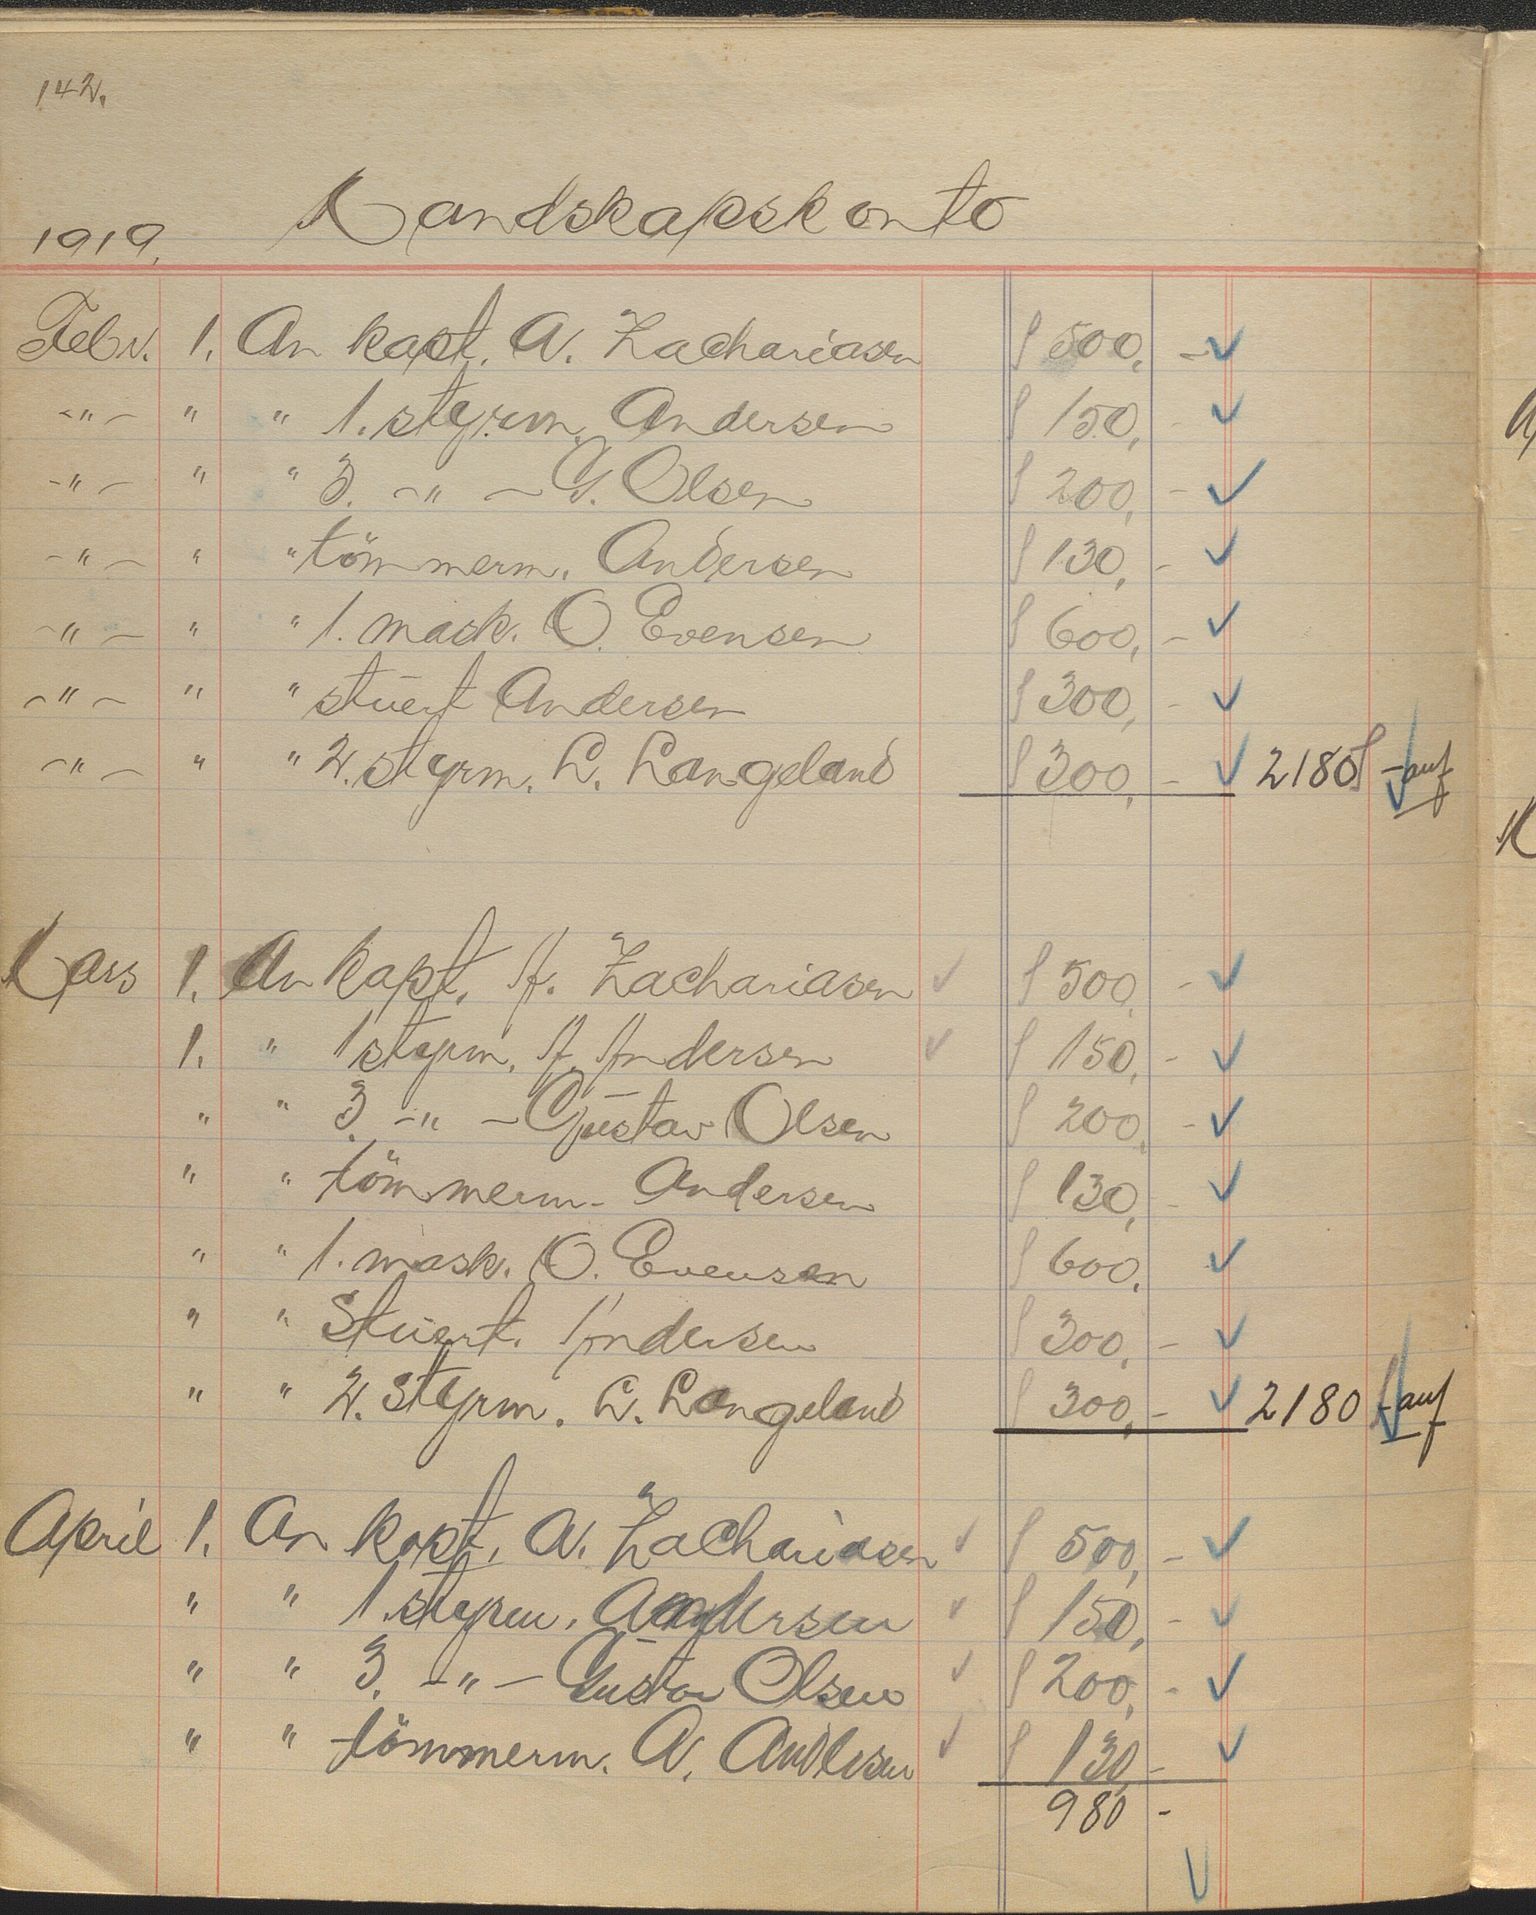 142.
1919. Mandskapskonto
Febr. 1. An kapt. A. Zachariasen 500, -
-"- " " 1. styrm. Andersen 150, -
-"- " " 3. -"- G. Olsen 200, -
-"- " " tömmerm. Andersen 130, -
-"- " " 1. mask. O. Evensen 600, -
-"- " " stuert Andersen 300, -
-"- " " 2. styrm. L. Langeland 300, - 2180 -
Mars 1. An kapt. A. Zachariasen 500, -
1. " 1 styrm. A. Andersen 150, -
" " 3. -"- Gustav Olsen 200, -
" " tömmerm. Andersen 130, -
" " 1. mask. O. Evensen 600,
" " Stuert. Andersen 300, -
" " 2. Styrm. L. Langeland 300, - 2180 -
April 1. An kapt. A. Zachariasen 500, -
" " 1. styrm. Andersen 150, -
" " 3. -"- Gustav Olsen 200, -
" " tömmerm. A. Andersen 130, -
980 -